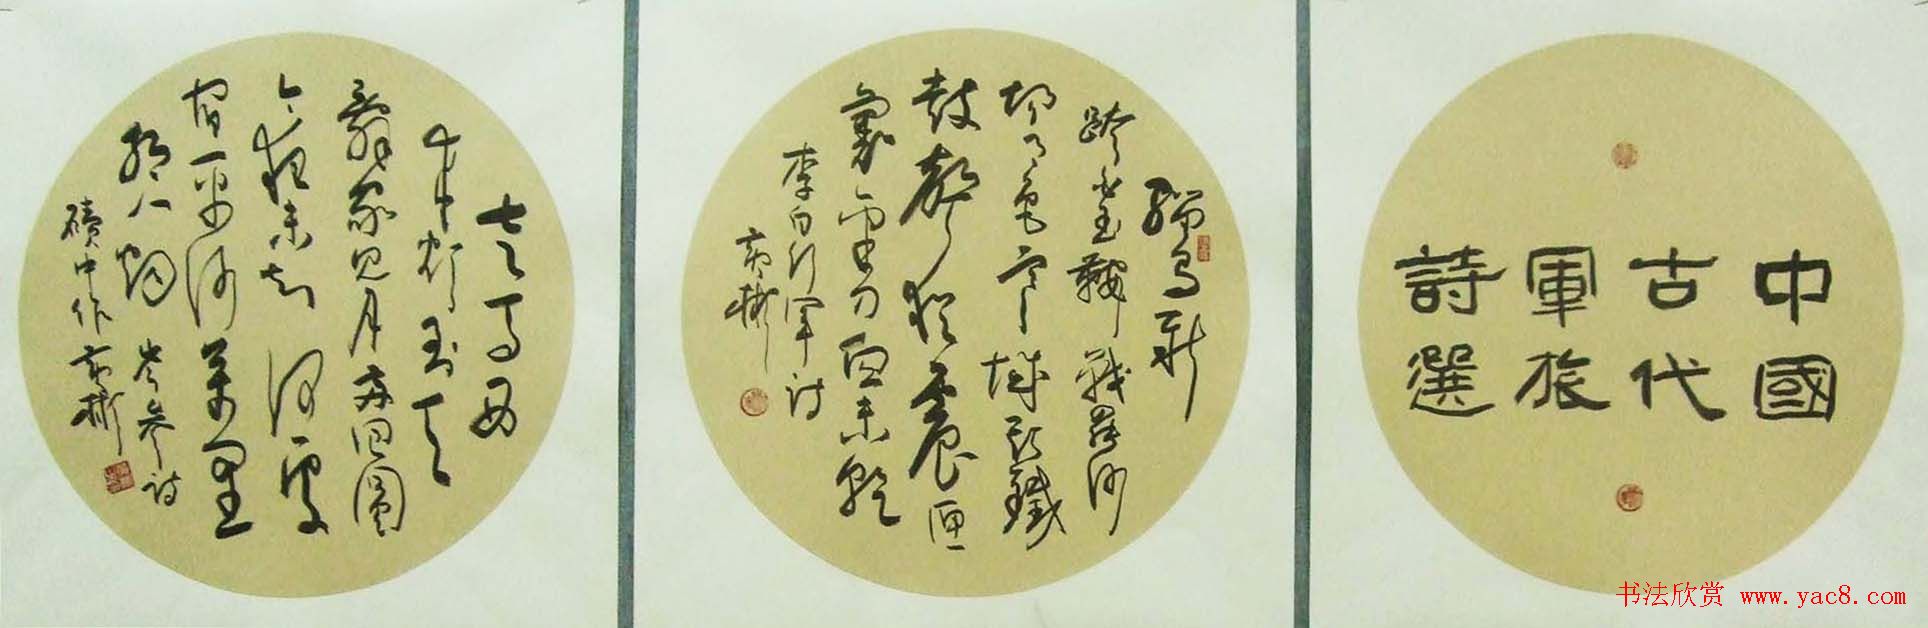 中國
古代
軍旅
詩選
騮馬新
跨白玉鞍戰罷沙
場月色寒城頭鐵
鼓聲猶震匣
裏金刀血未乾
李白行軍詩
走馬西
來欲到天
辭家見月兩回圓
今夜未知何處
宿平沙萬里
絕人煙 岑參詩
磧中作
书法欣赏 www.yac8.com